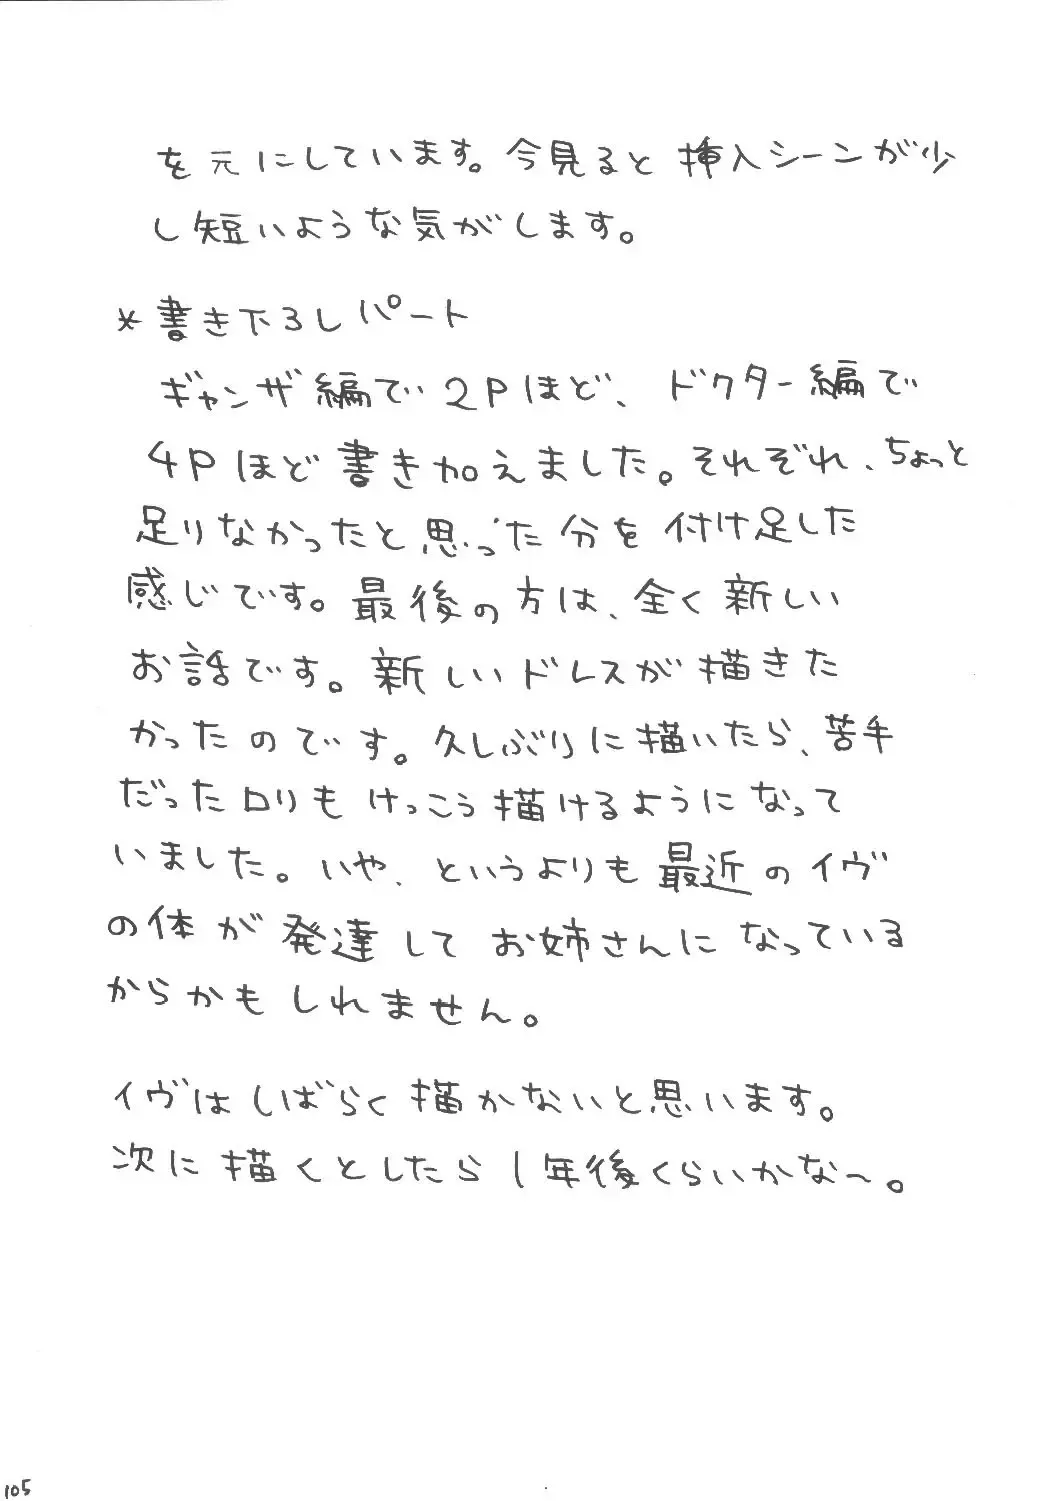 を元にしています。今見ると挿入シーンが少
し短いような気がします。
*書き下ろしパート
ギャンザ編で2Pほど、ドクター編で
4Pほど書き加えました。それぞれ、ちょっと
足りなかったと思った分を付け足した
感じです。最後の方は、全く新しい
お話です。新しいドレスが描きた
かったのです。久しぶりに描いたら、苦手
だったロリもけっこう描けるようになって
いました。いや、というよりも最近のイヴ
の体が発達してお姉さんになっている
からかもしれません。
イヴはしばらく描かないと思います。
次に描くとしたら1年後くらいかな〜。
105